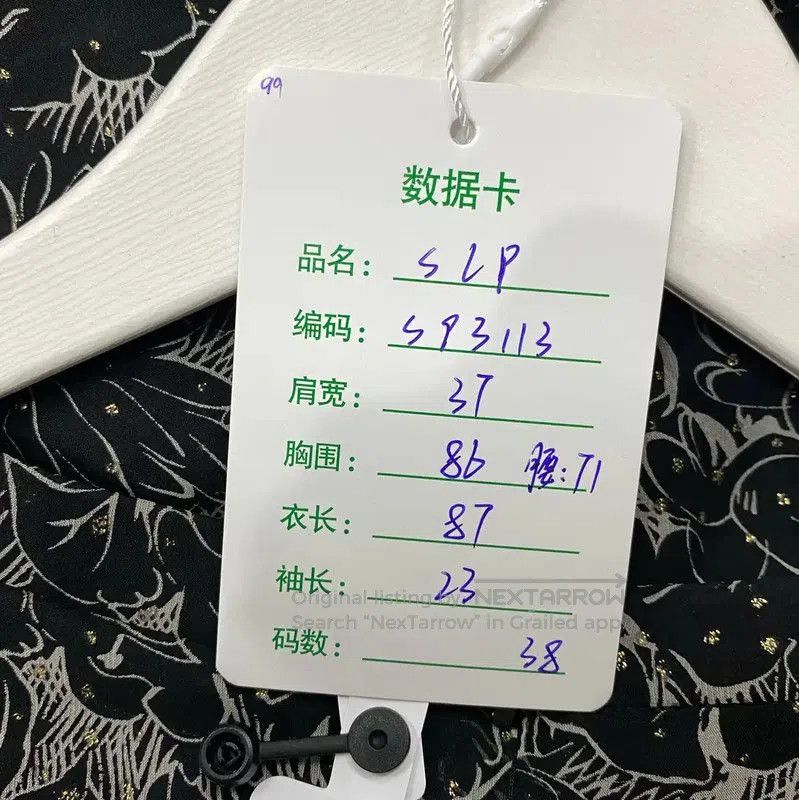 99
数据卡
品名: SLP
编码: SP3113
肩宽: 37
胸围: 86 腰:71
衣长: 87
袖长: 23
Original listing by NEXTARROW
Search "NexTarrow" in Grailed app
码数: 38